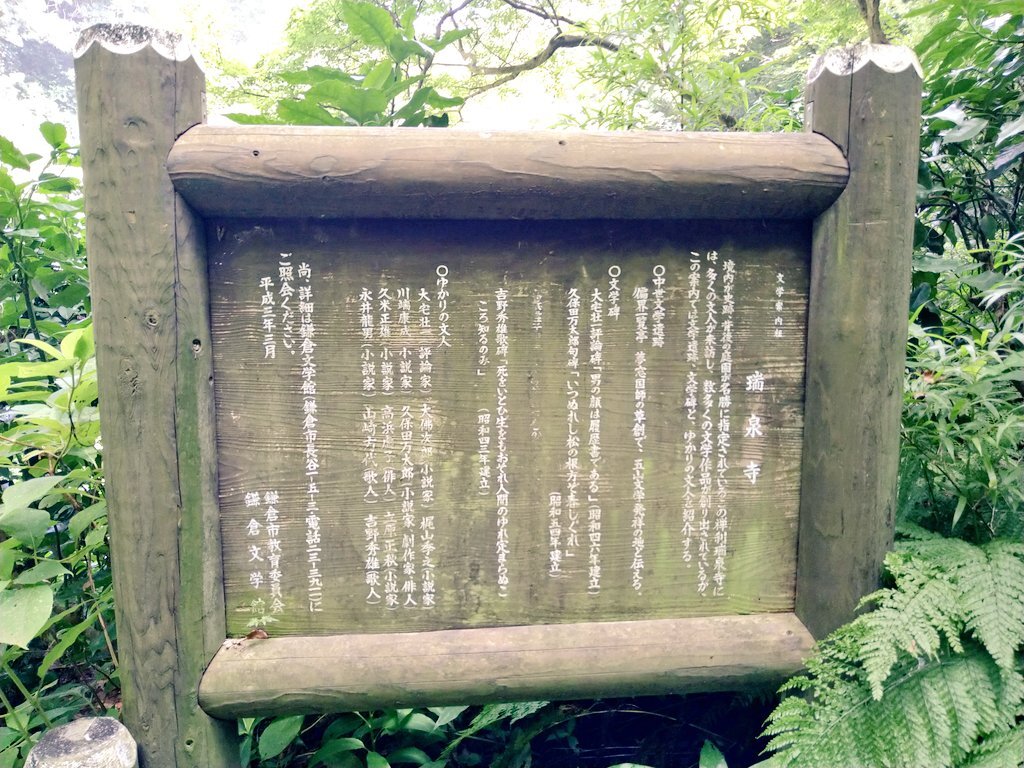 文学案内板
瑞泉寺
境内が史跡、背後の庭園が名勝に指定されているこの禅刹瑞泉寺に
は、多くの文人が来訪し、数多くの文学作品が創り出されているが、
この案内では文学遺跡、文学碑と、ゆかりの文人を紹介する。
○中世文学遺跡
偏界一覧亭 夢窓国師の草創で、五山文学発祥の地と伝える。
○文学碑
大宅壮一評論碑「男の顔は履歴書である」(昭和四六年建立)
久保田万太郎句碑「いつぬれし松の根方ぞ春しぐれ」
(昭和五四年建立)
吉野秀雄歌碑「死をいとひ生をもおそれ人間のゆれ定まらぬこ
ころ知るのみ」 (昭和四三年建立)
○ゆかりの文人
大宅壮一(評論家) 大佛次郎(小説家) 梶山季之(小説家)
川端康成(小説家) 久保田万太郎(小説家、劇作家、俳人)
久米正雄(小説家) 高浜虚子(俳人) 立原正秋(小説家)
永井龍男(小説家) 山崎方代(歌人) 吉野秀雄(歌人)
尚、詳細は鎌倉文学館(鎌倉市長谷一-五-三・電話二三-三九一一)に
ご照会ください。
平成三年三月
鎌倉市教育委員会
鎌倉文学館